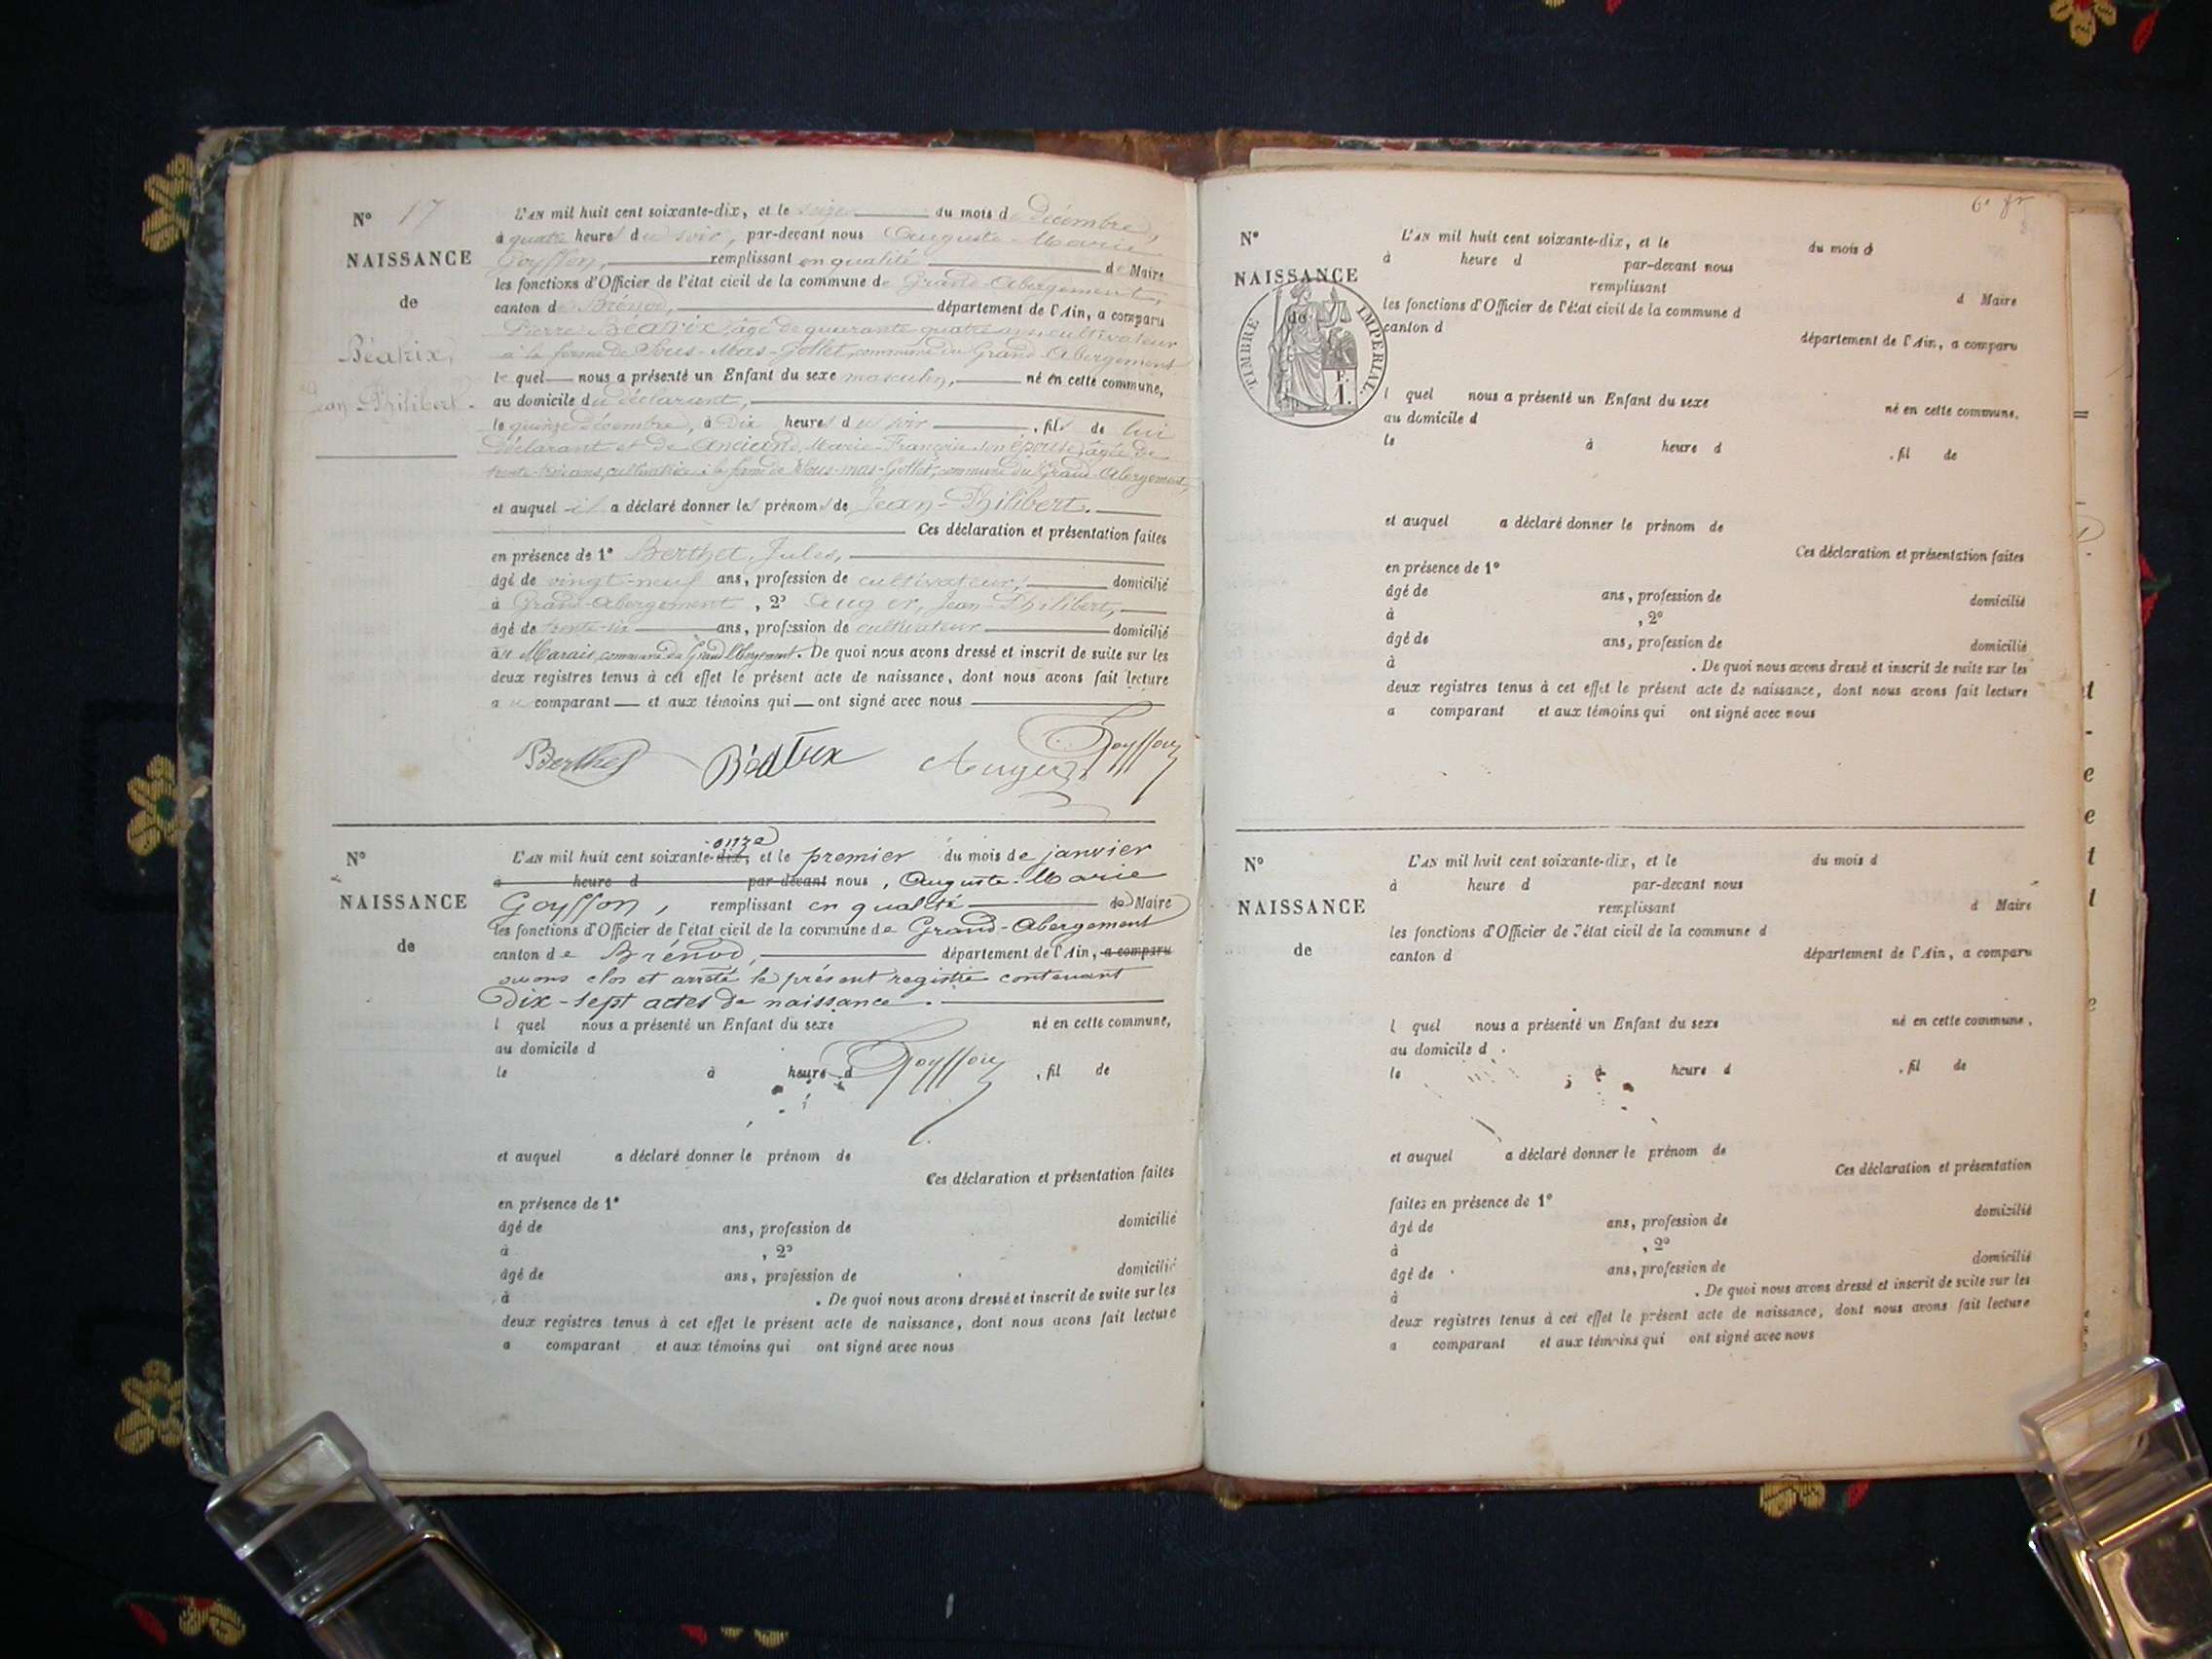 N° 17
NAISSANCE
de
Béatrix,
Jean-Philibert.
L'AN mil huit cent soixante-dix, et le seize du mois de Décembre,
à quatre heures du soir, par-devant nous Auguste-Marie
Goyffon, remplissant en qualité de Maire
les fonctions d'Officier de l'état civil de la commune de Grand-Abergement,
canton de Brénod, département de l'Ain, a comparu
Pierre Béatrix, âgé de quarante-quatre ans, cultivateur
à la ferme de Sous-Mas-Gollet, commune du Grand-Abergement
lequel nous a présenté un Enfant du sexe masculin, né en cette commune,
au domicile du déclarant,
le quinze Décembre, à dix heures du soir, fils de lui
Déclarant et de Marie-Françoise son épouse, âgée de
trente-trois ans, cultivatrice à la ferme de Sous-mas-Gollet, commune du Grand-Abergement,
et auquel il a déclaré donner les prénoms de Jean-Philibert.
Ces déclaration et présentation faites
en présence de 1° Berthet, Jules,
âgé de vingt-neuf ans, profession de cultivateur, domicilié
à Grand-Abergement, 2° Auger, Jean-Philibert,
âgé de trente-six ans, profession de cultivateur domicilié
au Marais, commune du Grand Abergement. De quoi nous avons dressé et inscrit de suite sur les
deux registres tenus à cet effet le présent acte de naissance, dont nous avons fait lecture
au comparant et aux témoins qui ont signé avec nous
Berthet Béatrix Auger Goyffon
N°
NAISSANCE
de
onze
L'AN mil huit cent soixante-dix, et le premier du mois de janvier
à heure d par-devant nous, Auguste-Marie
Goyffon, remplissant en qualité de Maire
les fonctions d'Officier de l'état civil de la commune de Grand-Abergement
canton de Brénod, département de l'Ain, a comparu
avons clos et arrêté le présent registre contenant
Dix-sept actes de naissance.
l quel nous a présenté un Enfant du sexe né en cette commune,
au domicile d
le à heure d , fil de
Goyffon
et auquel a déclaré donner le prénom de
Ces déclaration et présentation faites
en présence de 1°
âgé de ans, profession de domicilié
à , 2°
âgé de ans, profession de domicilié
à . De quoi nous avons dressé et inscrit de suite sur les
deux registres tenus à cet effet le présent acte de naissance, dont nous avons fait lecture
a comparant et aux témoins qui ont signé avec nous
N°
NAISSANCE
de
TIMBRE IMPERIAL.
F.
1.
L'AN mil huit cent soixante-dix, et le du mois d
à heure d par-devant nous
remplissant d Maire
les fonctions d'Officier de l'état civil de la commune d
canton d département de l'Ain, a comparu
l quel nous a présenté un Enfant du sexe né en cette commune,
au domicile d
le à heure d , fil de
et auquel a déclaré donner le prénom de
Ces déclaration et présentation faites
en présence de 1°
âgé de ans, profession de domicilié
à , 2°
âgé de ans, profession de domicilié
à . De quoi nous avons dressé et inscrit de suite sur les
deux registres tenus à cet effet le présent acte de naissance, dont nous avons fait lecture
a comparant et aux témoins qui ont signé avec nous
N°
NAISSANCE
de
L'AN mil huit cent soixante-dix, et le du mois d
à heure d par-devant nous
remplissant d Maire
les fonctions d'Officier de l'état civil de la commune d
canton d département de l'Ain, a comparu
l quel nous a présenté un Enfant du sexe né en cette commune,
au domicile d
le à heure d , fil de
et auquel a déclaré donner le prénom de
Ces déclaration et présentation
faites en présence de 1°
âgé de ans, profession de domicilié
à , 2°
âgé de ans, profession de domicilié
à . De quoi nous avons dressé et inscrit de suite sur les
deux registres tenus à cet effet le présent acte de naissance, dont nous avons fait lecture
a comparant et aux témoins qui ont signé avec nous